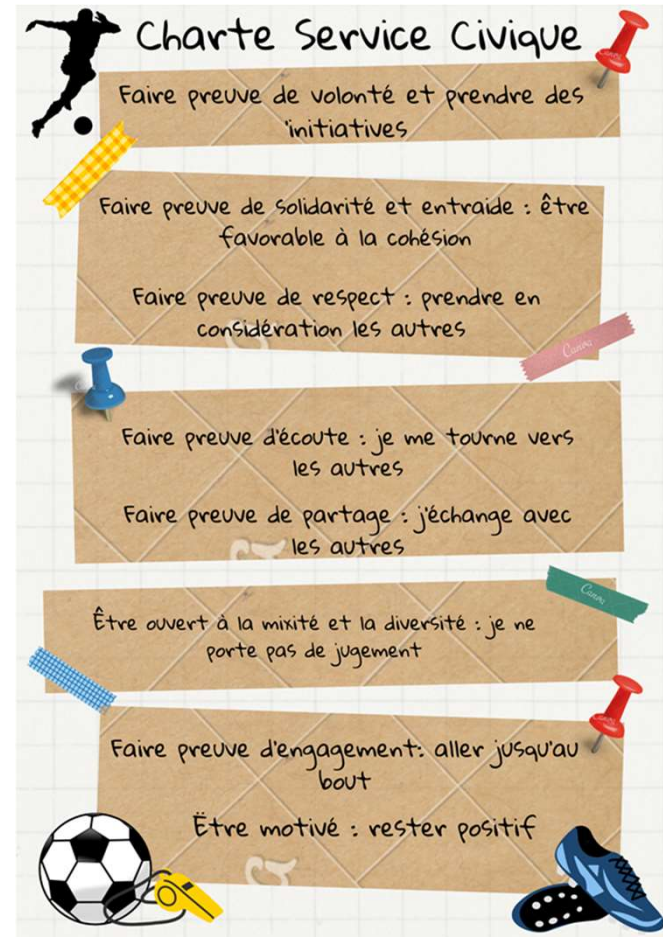 Charte Service Civique
Faire preuve de volonté et prendre des
'initiatives
Faire preuve de solidarité et entraide : être
favorable à la cohésion
Faire preuve de respect : prendre en
considération les autres
Canva
Faire preuve d'écoute : je me tourne vers
les autres
Faire preuve de partage : j'échange avec
les autres
Canva
Être ouvert à la mixité et la diversité : je ne
porte pas de jugement
Faire preuve d'engagement: aller jusqu'au
bout
Ëtre motivé : rester positif